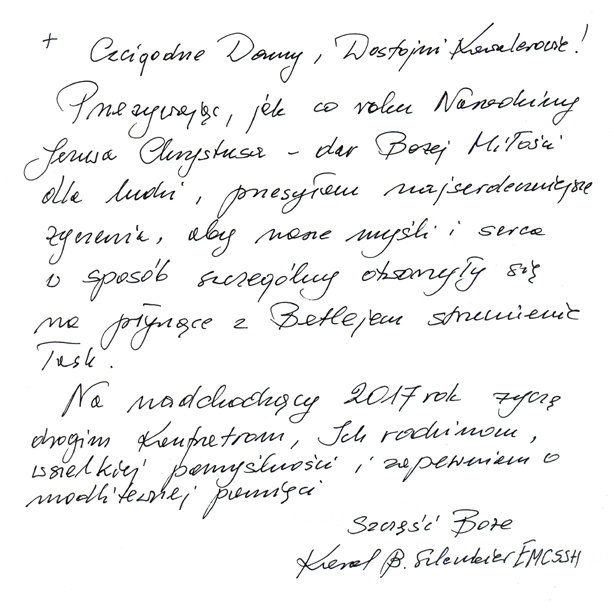 + Czcigodne Damy, Dostojni Kawalerowie!
Przeżywając, jak co roku Narodziny
Jezusa Chrystusa – dar Bożej Miłości
dla ludzi, przesyłam najserdeczniejsze
życzenia, aby nasze myśli i serca
w sposób szczególny otworzyły się
na płynące z Betlejem strumienie
Łask.
Na nadchodzący 2017 rok życzę
drogim Konfratrom, Ich rodzinom,
wszelkiej pomyślności i zapewniam o
modlitewnej pamięci
Szczęść Boże
Karol B. EMCSSH